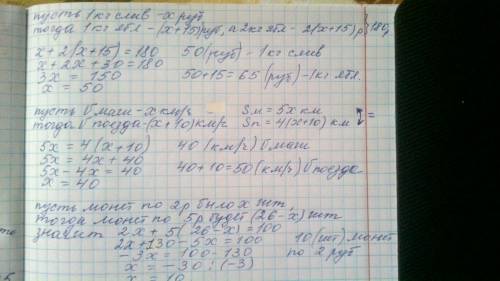 пусть 1 кг слив - x руб
тогда 1 кг ябл - (x+15) руб, а 2 кг ябл - 2(x+15) р } 180р
x + 2(x+15) = 180 50 (руб) - 1 кг слив
x + 2x + 30 = 180
3x = 150 50+15 = 65 (руб) - 1 кг ябл.
x = 50
пусть V маш - x км/ч Sм = 5x км
тогда V поезда - (x+10) км/ч Sп = 4(x+10) км ] =
5x = 4(x+10) 40 (км/ч) V маш
5x = 4x + 40
5x - 4x = 40 40+10 = 50 (км/ч) V поезда
x = 40
пусть монет по 2р было x шт,
тогда монет по 5р будет (26-x) шт
значит 2x + 5(26-x) = 100
2x + 130 - 5x = 100 10 (шт) монет
-3x = 100 - 130 по 2 руб
x = -30 : (-3)
x = 10